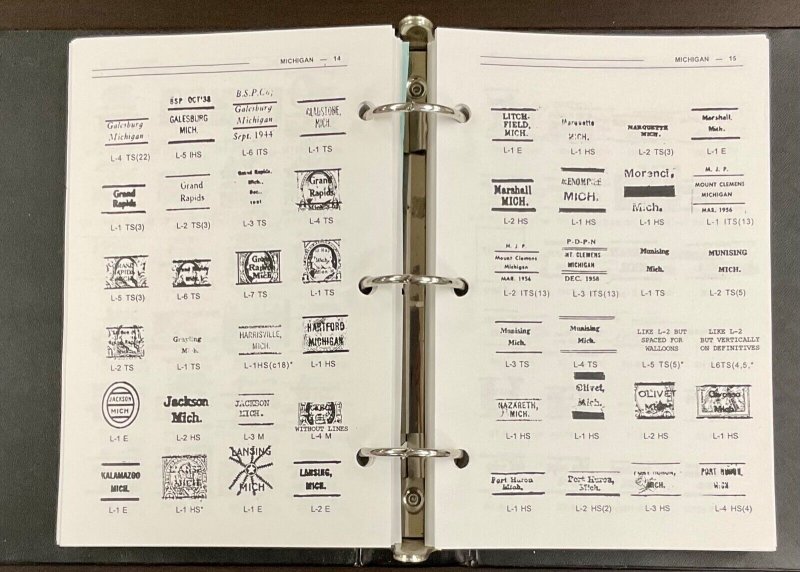 MICHIGAN — 14
BSP OCT'38
B.S.P.Co;
Galesburg
Michigan
GALESBURG
MICH.
Galesburg
Michigan
Sept. 1944
GLADSTONE,
MICH.
L-4 TS(22)
L-5 IHS
L-6 ITS
L-1 TS
Grand
Rapids
Grand
Rapids
Grand Rapids,
Mich.,
Grand
Rapids
L-1 TS(3)
L-2 TS(3)
L-3 TS
L-4 TS
GRAND
RAPIDS
MICH
Grand Rapids
Mich
Grand
Rapids
Mich
L-5 TS(3)
L-6 TS
L-7 TS
L-1 TS
Grayling
HARRISVILLE,
MICH.
HARTFORD
MICHIGAN
L-2 TS
L-1 TS
L-1HS(c18)*
L-1 HS
JACKSON
MICH
Jackson
Mich.
JACKSON
MICH.
WITHOUT LINES
L-1 E
L-2 HS
L-3 M
L-4 M
KALAMAZOO
MICH.
MICH
LANSING
MICH
LANSING,
MICH.
L-1 E
L-1 HS*
L-1 E
L-2 E
MICHIGAN — 15
LITCH-
FIELD,
MICH.
Marquette
MICH.
MARQUETTE
MICH.
Marshall,
Mich.
L-1 E
L-1 HS
L-2 TS(3)
L-1 E
Marshall
MICH.
MENOMINEE
MICH.
Morenci,
Mich.
M. J. P.
MOUNT CLEMENS
MICHIGAN
MAR. 1956
L-2 HS
L-1 HS
L-1 HS
L-1 ITS(13)
M. J. P
Mount Clemens
Michigan
MAR. 1956
P-D-P-N
MT. CLEMENS
MICHIGAN
DEC. 1958
Munising
Mich.
MUNISING
MICH.
L-2 ITS(13)
L-3 ITS(13)
L-1 TS
L-2 TS(5)
Munising
Mich.
Munising
Mich.
LIKE L-2 BUT
SPACED FOR
WALLOONS
LIKE L-2
BUT VERTICALLY
ON DEFINITIVES
L-3 TS
L-4 TS
L-5 TS(5)*
L6TS(4,5,*
NAZARETH,
MICH.
Olivet,
Mich.
OLIVET
Mich
Owosso
Mich
L-1 HS
L-1 HS
L-2 HS
L-1 HS
Port Huron
Mich.
Port Huron,
Mich.
PORT HURON,
MICH.
PORT HURON,
MICH
L-1 HS
L-2 HS(2)
L-3 HS
L-4 HS(4)